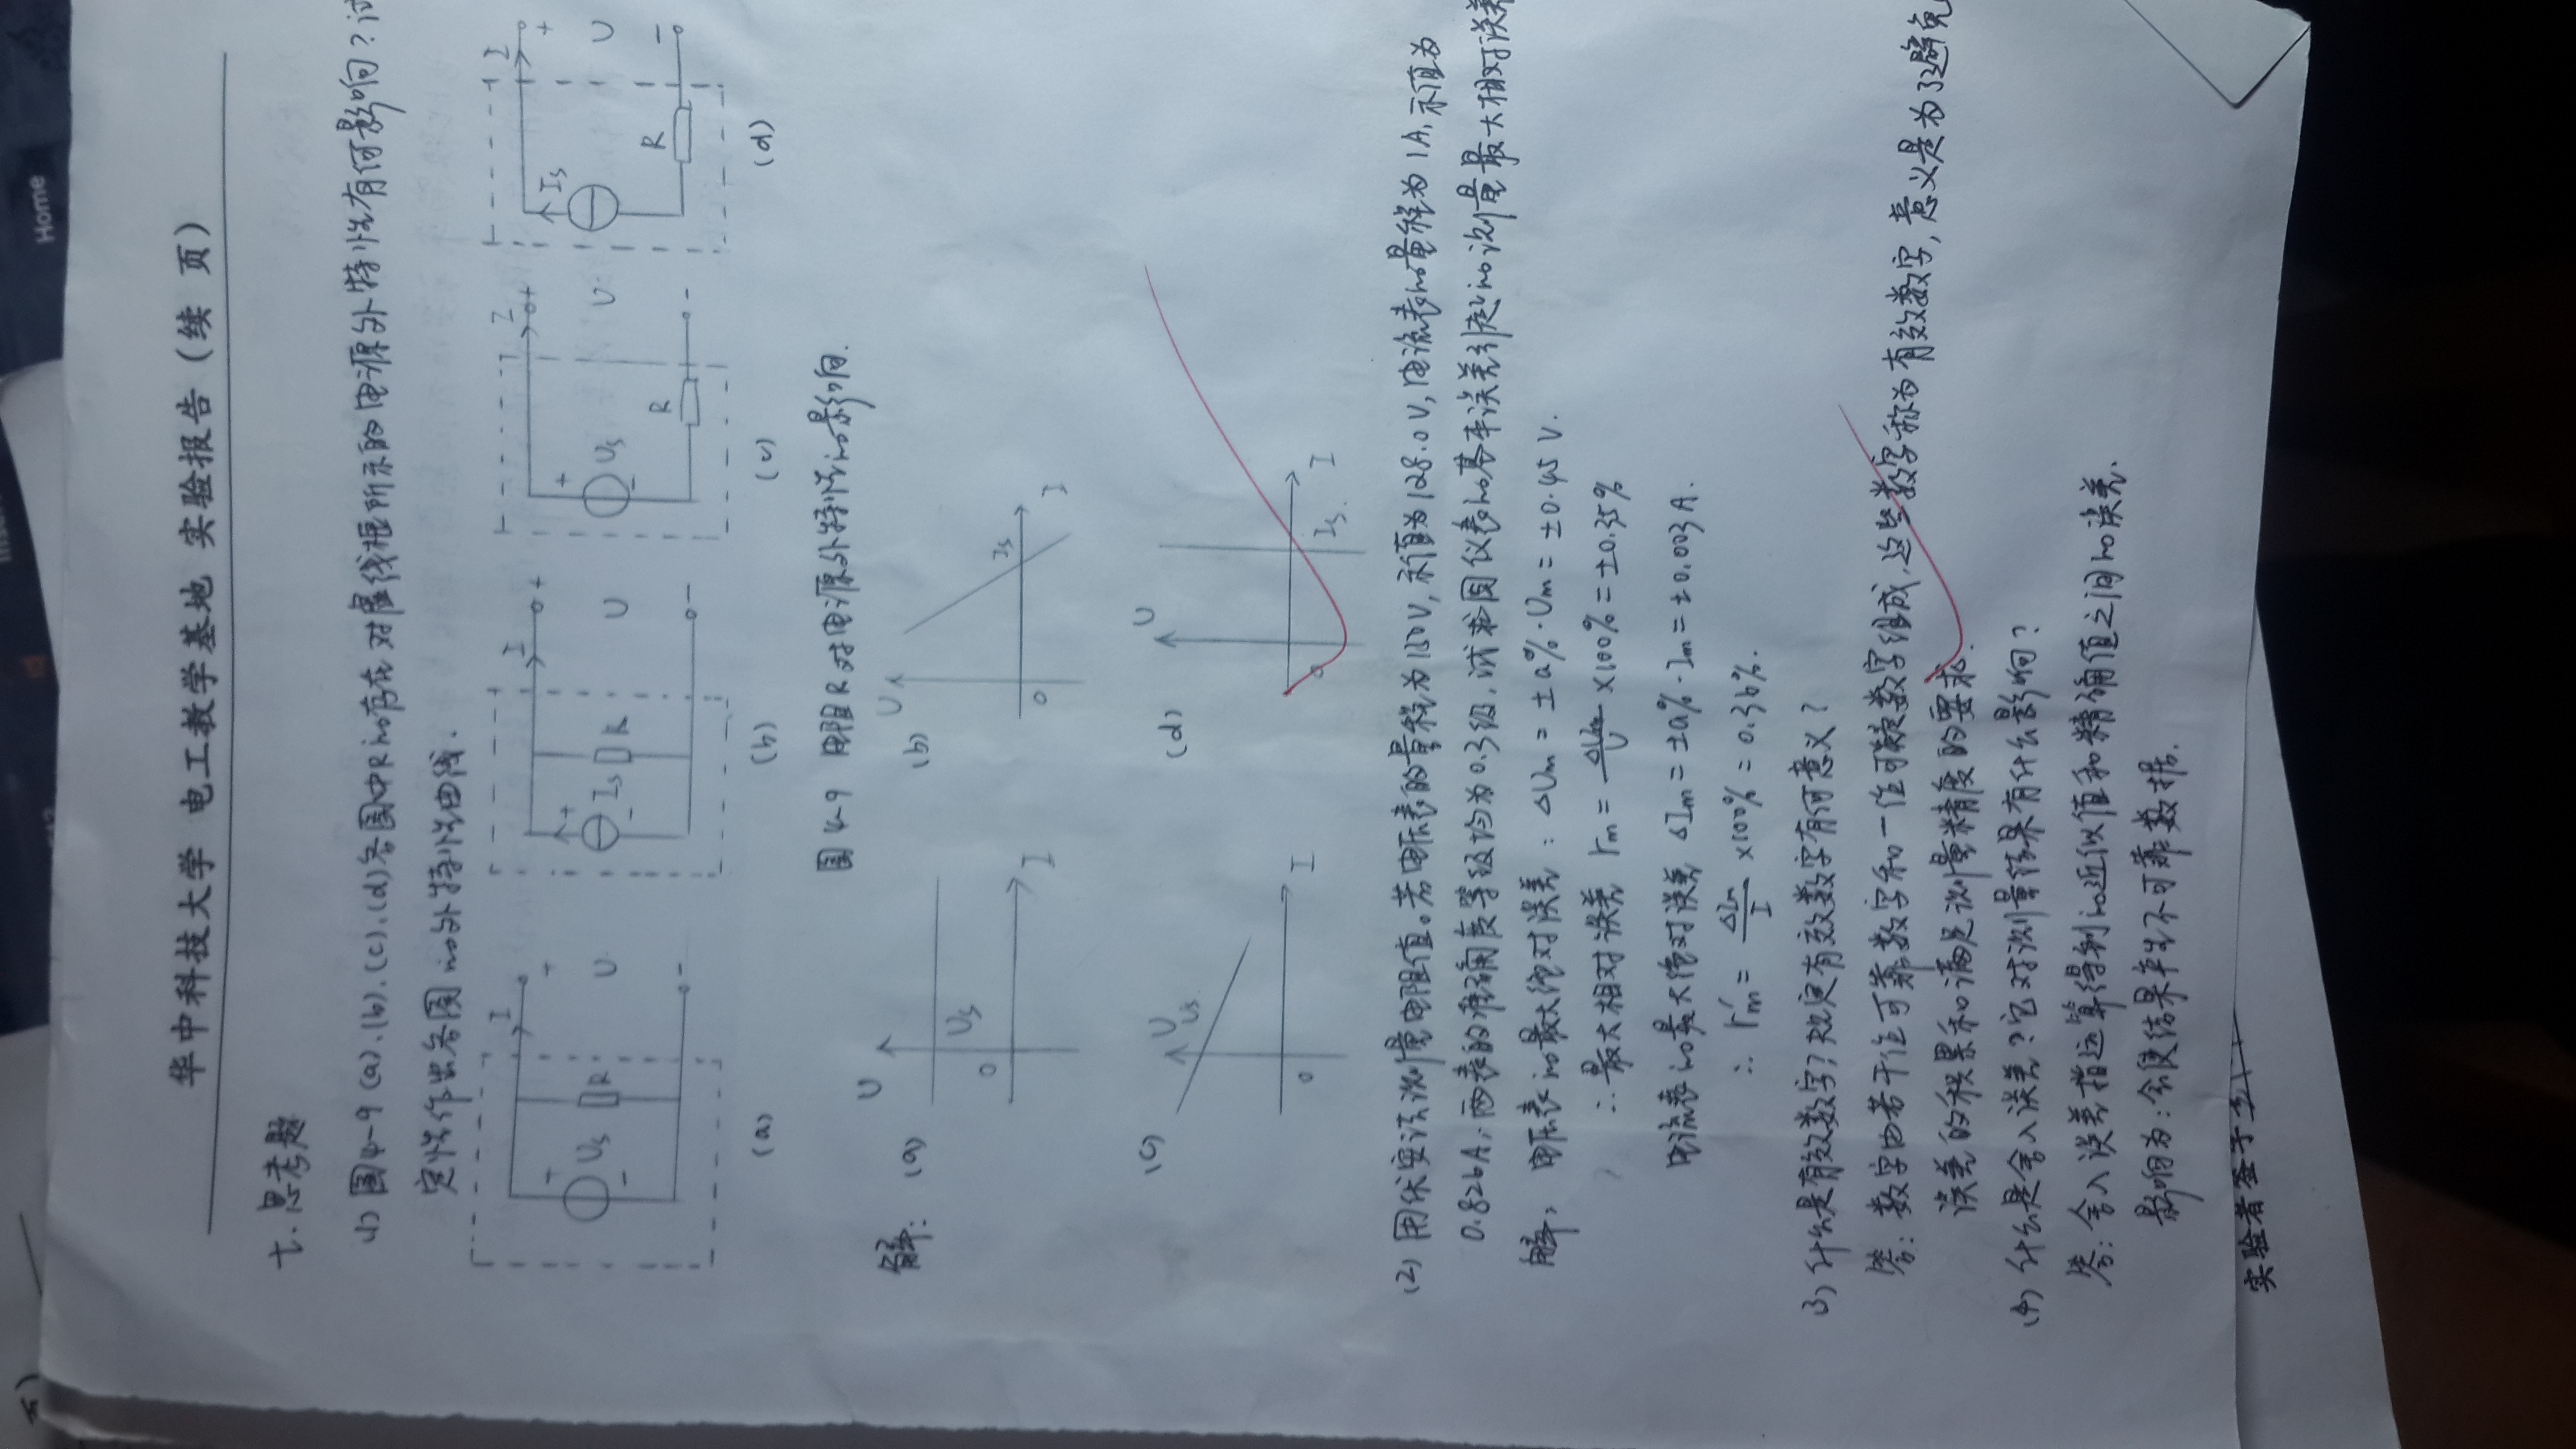 Home
华中科技大学 电工教学基地 实验报告(续 页)
七、思考题
(1) 图4-9 (a)、(b)、(c)、(d)各图中R的存在对虚线框所示的电源外特性有何影响?试
定性作出各图的外特性曲线.
I + Us - R + U -
I + Is - R + U -
I + Us - R + U -
I Is R + U -
(a) (b) (c) (d)
图4-9 电阻R对电源外特性的影响.
解: (a) U Us 0 I
(b) U Is 0 I
(c) U Us 0 I
(d) U 0 Is. I
(2) 用伏安法测量电阻值。若电压表的量程为150V, 示值为128.0V, 电流表的量程为1A, 示值为
0.826A, 两表的准确度等级均为0.3级, 试求因仪表的基本误差引起的测量最大相对误差
解: 电压表的最大绝对误差: ΔUm = ±a%·Um = ±0.45 V.
∴最大相对误差 rm = ΔUm/U ×100% = ±0.35%
电流表的最大绝对误差 ΔIm = ±a%·Im = ±0.003A.
∴ r'm = ΔIm/I ×100% = 0.36%.
(3) 什么是有效数字?规定有效数字有何意义?
答: 数字由若干位可靠数字和一位可疑数字组成,这些数字称为有效数字, 意义是为了避免
误差的积累和满足测量精度的要求.
(4) 什么是舍入误差?它对测量结果有什么影响?
答: 舍入误差指运算得到的近似值和精确值之间的误差.
影响为: 会使结果产生不可靠数据.
实验者签字